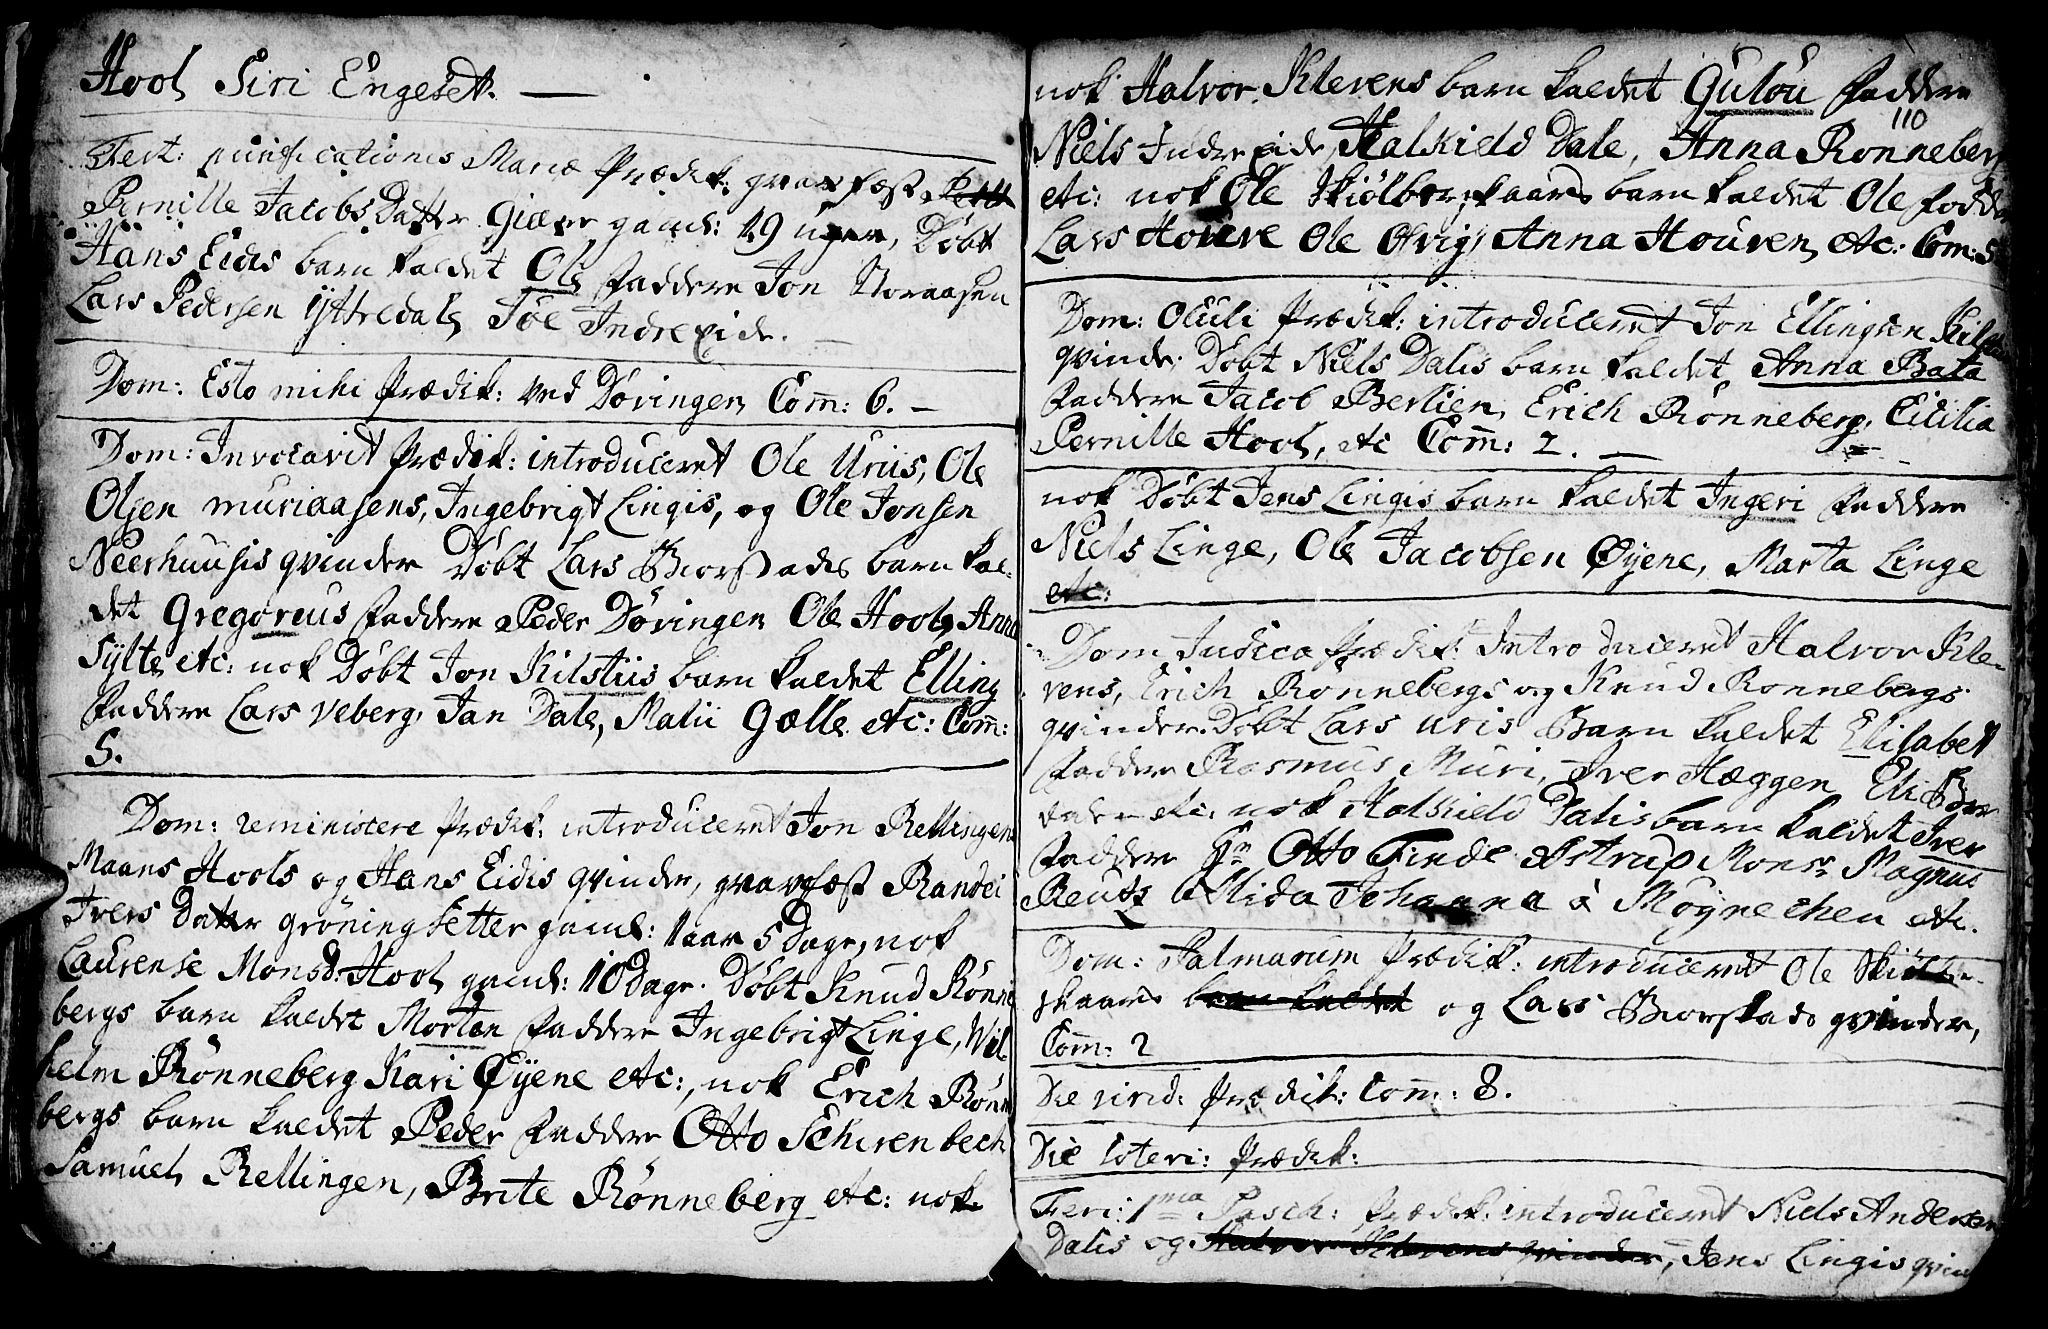 Hool Siri Engeset. —
Fest: purificationis Mariæ Prædik: graffæst
Pernille Jacobs Datter Giære gaml: 19 uger, Døbt
Hans Eidis barn kaldet Ole faddere Jon Storaasen
Lars Pedersen Yttredal, Töe Indreeide. —
Dom: Esto mihi Prædik: ved Døvingen Com̄: 6. —
Dom: Invocavit Prædik: introduceret Ole Uriis, Ole
Olsen muriaasens, Ingebrigt Lingis, og Ole Jonsen
Neerhuusis qvinder Døbt Lars Biorstadis barn kal-
det Gregoreus faddere Peder Døvingen Ole Hool, Anna
Sylte etc: nok Døbt Jon Kilstiis barn kaldet Elling
faddere Lars Veberg, Jan Dale, Malii Gælle etc: Com̄:
5.
Dom: reministere Prædik: introduceret Jon Rellingens
Maans Hools og Hans Eidis qvinder, graffæst Randei
Ivers Datter Grøningsetter gaml: 1 aar 5 Dage, nok
Laurense Monsd: Hool gaml: 10 Dage. Døbt Knud Rønne
bergs barn kaldet Morten faddere Ingebrigt Linge, Wil-
helm Rønneberg Kari Øyene etc:, nok Erich Rønne
bergs barn kaldet Peder faddere Otto Schirenbech
Samuel Rellingen, Brite Rønneberg etc: nok
nok Halvor Klevens barn kaldet Gulou faddere
110
Niels Indreeide, Halkield Dale, Anna Ronneberg
etc: nok Ole Skiølberskaars barn kaldet Ole fadde
Lars Houve Ole Olvig, Anna Houven etc: Com: 5
Dom: Oculi Prædik: introduceret Jon Ellingsen Kilsti
qvinde. Døbt Niels Dalis barn kaldet Anna Bata
faddere Jacob Berlien, Erich Rønneberg, Cicilia
Pernille Hool, etc Com̄: 2. —
nok Døbt Jens Lingis barn kaldet Ingeri faddere
Niels Linge, Ole Jacobsen Øyene, Marta Linge
etc:
Dom Judica Prædik: Introduceret Halvor Kle-
vens, Erich Rønnebergs og Knud Ronnebergs
qvinder. Døbt Lars Uris Barn kaldet Elisabet
faddere Rasmus Muri, Iver Hæggen Eli
etc: nok Halkield Dalis barn kaldet Iver
faddere Hr Otto Finde Astrup Monsr Magnus
Reutz Allida Johanna à Møynechen etc.
Dom: Palmarum Prædik: introduceret Ole Skiølber-
skaars barn kaldet og Lars Biorstads qvinder,
Com̄: 2
Die virid: Prædik: Com̄: 8.
Die loteri: Prædik:
Feri: 1ma Pasch: Prædik: introduceret Niels Andersen
Dalis og Halvor Klevens qvinder, Jens Lingis qvin